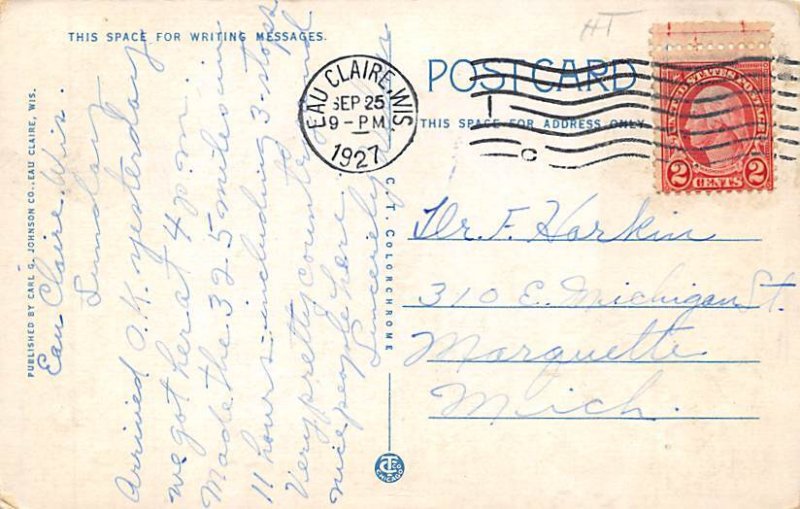 THIS SPACE FOR WRITING MESSAGES.
POST CARD
THIS SPACE FOR ADDRESS ONLY
EAU CLAIRE, WIS.
SEP 25
9 - PM
1927
UNITED STATES POSTAGE
2 CENTS 2
HT
Dr. F. Harkin
310 E. Michigan St.
Marquette
Mich.
Eau Claire Wis.
Sunday
Arrived O.K. yesterday
we got her at 4 p.m.
Made the 325 miles in
11 hours - including 3 stops
Very pretty country and
nice people here
Sincerely
PUBLISHED BY CARL G. JOHNSON CO., EAU CLAIRE, WIS.
C. T. COLORCHROME
CHICAGO